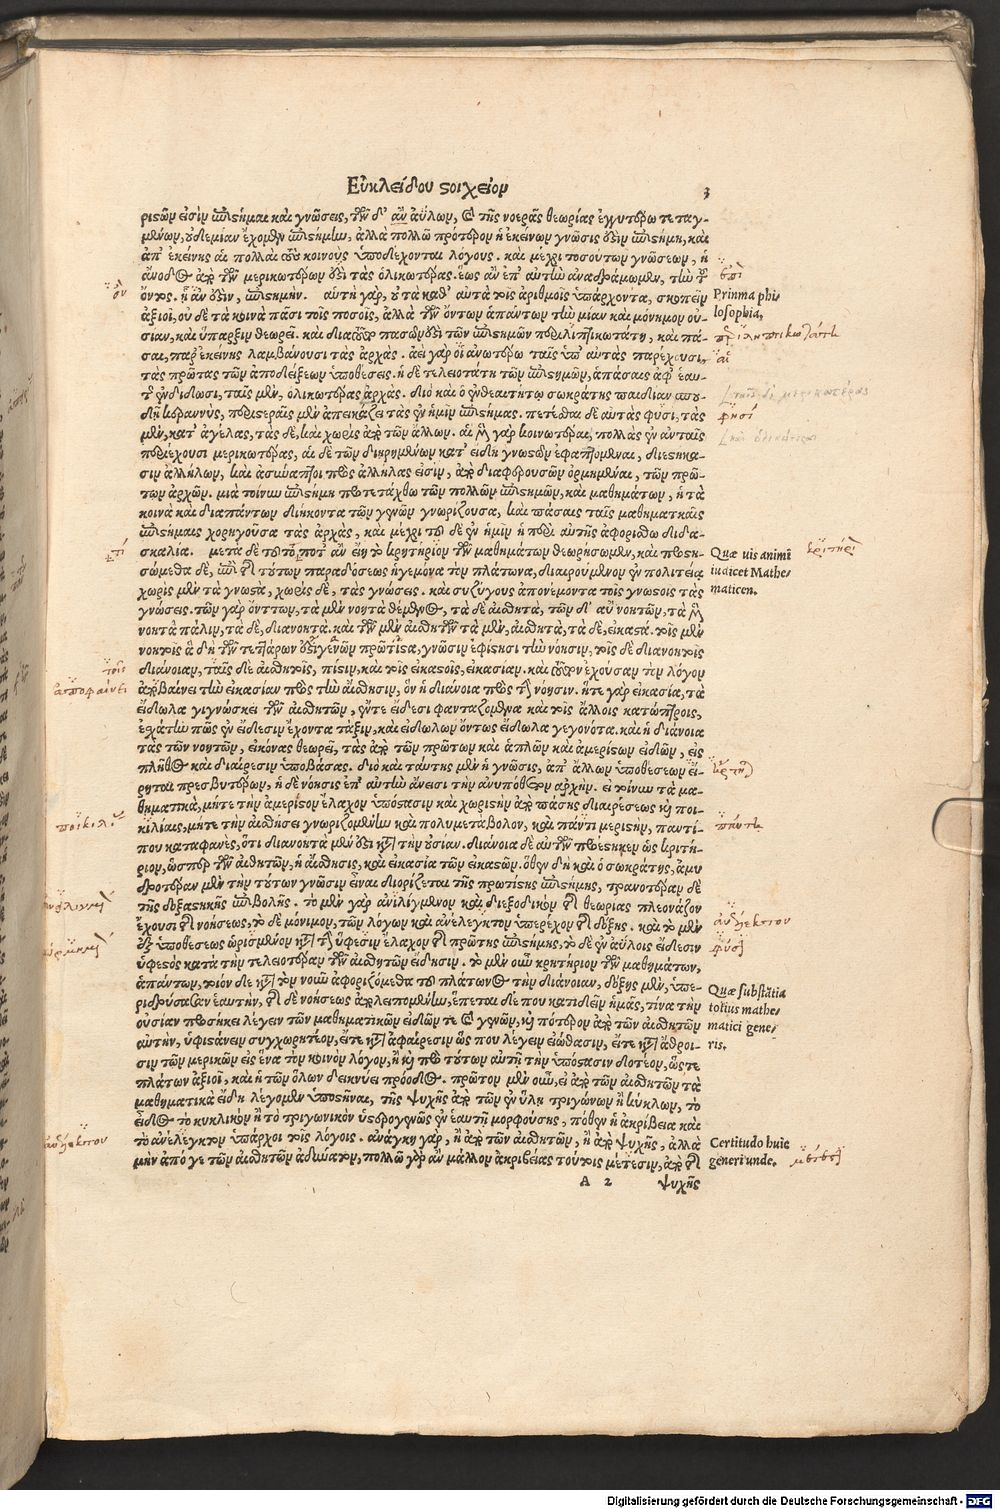 Εὐκλείδου ϛοιχείον
3
ριϛῶν εἰσὶν ἐπιϛῆμαι καὶ γνώσεις, τῶν δ' ἂν ἀΰλων, καὶ τῆς νοερᾶς θεωρίας ἐγγυτέρω τεταγ-
μένων, οὐδεμίαν ἔχομεν ἐπιϛήμην, ἀλλὰ πολλῷ πρότερον ἡ ἐκείνων γνῶσις ἐϛὶν ἐπιϛήμη, καὶ
ἀπ' ἐκείνης αἱ πολλαὶ τοὺς κοινοὺς ὑποδέχονται λόγους. καὶ μέχρι τοσούτων γνώσεων, ἡ
ἄνοδος ἀπὸ τῶν μερικωτέρων ἐπὶ τὰς ὁλικωτέρας. ἕως ἂν ἐπ' αὐτὴν ἀναδράμωμεν, τὴν τοῦ
ὄντος. ᾗ ἂν ἐϛιν, ἐπιϛήμην. αὐτὴ γὰρ, οὐ τὰ καθ' αὑτὰ τοῖς ἀριθμοῖς ὑπάρχοντα, σκοπεῖν
ἀξιοῖ, οὐδὲ τὰ κοινὰ πᾶσι τοῖς ποσοῖς, ἀλλὰ τῶν ὄντων ἁπάντων τὴν μίαν καὶ μόνιμον οὐ-
σίαν, καὶ ὕπαρξιν θεωρεῖ. καὶ διὰ τοῦτο πασῶν ἐϛὶ τῶν ἐπιϛημῶν περιληπτικωτάτη, καὶ πᾶ-
σαι, παρ' ἐκείνης λαμβάνουσι τὰς ἀρχάς. ἀεὶ γὰρ οἱ ἀνωτέρω ταῖς ὑπ' αὐτὰς παρέχουσι,
τὰς πρώτας τῶν ἀποδείξεων ὑποθέσεις. ἡ δὲ τελειοτάτη τῶν ἐπιϛημῶν, ἁπάσαις ἀφ' ἑαυ-
τῆς ἐνδίδωσι, ταῖς μὲν, ὁλικωτέρας ἀρχάς. διὸ καὶ ὁ ἐν θεαιτήτῳ σωκράτης παιδιὰν σπου-
δῇ κεραννὺς, περιϛεραῖς μὲν ἀπεικάζει τὰς ἐν ἡμῖν ἐπιϛήμας. πέτεσθαι δὲ αὐτὰς φυσι, τὰς
μὲν, κατ' ἀγέλας, τὰς δὲ, καὶ χωρὶς ἀπὸ τῶν ἄλλων. αἱ μὲν γὰρ κοινωτέραι, πολλὰς ἐν αὑταῖς
περιέχουσι μερικωτέρας, αἱ δὲ τῶν διῃρημένων κατ' εἴδη γνωϛῶν ἐφαπτόμεναι, διεϛήκα-
σιν ἀλλήλων, καὶ ἀσύναπτοι πρὸς ἀλλήλας εἰσὶν, ἀπὸ διαφερουσῶν ὁρμημέναι, τῶν πρώ-
των ἀρχῶν. μία τοίνυν ἐπιϛήμη προτετάχθω τῶν πολλῶν ἐπιϛημῶν, καὶ μαθημάτων, ἡ τὰ
κοινὰ καὶ διαπάντων διήκοντα τῶν γενῶν γνωρίζουσα, καὶ πάσαις ταῖς μαθηματικαῖς
ἐπιϛήμαις χορηγοῦσα τὰς ἀρχὰς, καὶ μέχρι τοῦ δὲ ἐν ἡμῖν ἡ περὶ αὐτῆς ἀφορίσθω διδα-
σκαλία. μετὰ δὲ τοῦτο ποτ' ἂν εἴη τὸ κρητηρίον τῶν μαθημάτων θεωρήσωμεν, καὶ προϛη-
σώμεθα δὲ, ἐπὶ τῆς τούτων παραδόσεως ἡγεμόνα τὸν πλάτωνα, διαιρούμενον ἐν πολιτείᾳ
χωρὶς μὲν τὰ γνωϛὰ, χωρὶς δὲ, τὰς γνώσεις. καὶ συζύγους ἀπονέμοντα τοῖς γνωϛοῖς τὰς
γνώσεις. τῶν γὰρ ὄντων, τὰ μὲν νοητὰ θέμενος, τὰ δὲ αἰσθητὰ, τῶν δ' αὖ νοητῶν, τὰ μὲν
νοητὰ πάλιν, τὰ δὲ, διανοητά. καὶ τῶν μὲν αἰσθητῶν τὰ μὲν, αἰσθητὰ, τὰ δὲ, εἰκαϛά. τοῖς μὲν
νοητοῖς ἃ δὴ τῶν τεττάρων ἐϛὶ γενῶν πρώτιϛα, γνῶσιν ἐφίησι τὴν νόησιν, τοῖς δὲ διανοητοῖς
διάνοιαν, ταῖς δὲ αἰσθητοῖς, πίϛιν, καὶ τοῖς εἰκαϛοῖς, εἰκασίαν. καὶ τοῦτον ἐχούσαν τὴν λόγον
ἀποβαίνει τὴν εἰκασίαν πρὸς τὴν αἴσθησιν, ὃν ἡ διάνοια πρὸς τὴν νόησιν. ἥτε γὰρ εἰκασία, τὰ
εἴδωλα γιγνώσκει τῶν αἰσθητῶν, ἔντε εἴδεσι φανταζόμενα καὶ τοῖς ἄλλοις κατόπτροις,
ἐσχάτην πῶς ἐν εἴδεσιν ἔχοντα τάξιν, καὶ εἰδώλων ὄντως εἴδωλα γεγονότα. καὶ ἡ διάνοια
τὰς τῶν νοητῶν, εἰκόνας θεωρεῖ, τὰς ἀπὸ τῶν πρώτων καὶ ἁπλῶν καὶ ἀμερίϛων εἰδῶν, εἰς
πλῆθος καὶ διαίρεσιν ὑποβάσας. διὸ καὶ ταύτης μὲν ἡ γνῶσις, ἀπ' ἄλλων ὑποθέσεων εἴ-
ρηται πρεσβυτέρων, ἡ δὲ νόησις ἐπ' αὐτὴν ἄνεισι τὴν ἀνυπόθετον ἀρχήν. εἰ τοίνυν τὰ μα-
θηματικὰ, μήτε τὴν ἀμέριϛον ἔλαχον ὑπόϛασιν καὶ χωριϛὴν ἀπὸ πάσης διαιρέσεως καὶ ποι-
κιλίαις, μήτε τὴν αἰσθήσει γνωριζομένην καὶ πολυμετάβολον, καὶ πάντῃ μεριϛὴν, παντί-
που καταφανὲς, ὅτι διανοητὰ μέν ἐϛι κατὰ τὴν οὐσίαν. διάνοια δὲ αὐτῶν προέϛηκεν ὡς κριτή-
ριον, ὥσπερ τῶν αἰσθητῶν, ἡ αἴσθησις, καὶ εἰκασία τῶν εἰκαϛῶν. ὅθεν δὴ καὶ ὁ σωκράτης, ἀμυ
δροτέραν μὲν τὴν τούτων γνῶσιν εἶναι διορίζεται τῆς πρωτίϛης ἐπιϛήμης, τρανοτέραν δὲ
τῆς δοξαϛικῆς ἐπιβολῆς. τὸ μὲν γὰρ ἀνιλιγμένον καὶ διεξοδικὸν τῆς θεωρίας πλεονάζον
ἔχουσι τῆς νοήσεως, τὸ δὲ μόνιμον, τῶν λόγων καὶ ἀνελεγκτον ὑπερέχον τῆς δόξης. καὶ τὸ μὲν
ἐξ ὑποθέσεως ὡρισμένον κατὰ τὴν ὕφεσιν ἔλαχον τῆς πρώτης ἐπιϛήμης, τὸ δὲ ἐν ἀΰλοις εἴδεσιν
ὑφεϛὸς κατὰ τὴν τελειοτέραν τῶν αἰσθητῶν εἴδησιν. τὸ μὲν οὖν κρητήριον τῶν μαθημάτων,
ἁπάντων, τοιόνδε κατὰ τὸν νοῦν ἀφοριζόμεθα τοῦ πλάτωνος τὴν διάνοιαν, δόξης μὲν, ὑπε-
ριδρύσασαν ἑαυτὴν, τῆς δὲ νοήσεως ἀπολειπομένην, ἕπεται δέ που κατιδεῖν ἡμᾶς, τίνα τὴν
οὐσίαν προσήκει λέγειν τῶν μαθηματικῶν εἰδῶν τε καὶ γενῶν, καὶ πότερον ἀπὸ τῶν αἰσθητῶν
αὐτὴν, ὑφιϛάνειν συγχωρητέον, εἴτε κατὰ ἀφαίρεσιν ὥς που λέγειν εἰώθασιν, εἴτε κατὰ ἄθροι-
σιν τῶν μερικῶν εἰς ἕνα τὸν κοινὸν λόγον, ἢ καὶ πρὸ τούτων αὐτῇ τὴν ὑπόϛασιν δοτέον, ὥς τε
πλάτων ἀξιοῖ, καὶ ἡ τῶν ὅλων δεικνύει πρόοδος. πρῶτον μὲν οὖν, εἰ ἀπὸ τῶν αἰσθητῶν τὰ
μαθηματικὰ εἴδη λέγομεν ὑποϛῆναι, τῆς ψυχῆς ἀπὸ τῶν ἐν ὕλῃ τριγώνων ἢ κύκλων, τὸ
εἶδος τὸ κυκλικὸν ἢ τὸ τριγωνικὸν ὑϛερογενῶς ἐν ἑαυτῇ μορφούσης, πόθεν ἡ ἀκρίβεια καὶ
τὸ ἀνέλεγκτον ὑπάρχοι τοῖς λόγοις. ἀνάγκη γὰρ, ἢ ἀπὸ τῶν αἰσθητῶν, ἢ ἀπὸ ψυχῆς, ἀλλὰ
μὴν ἀπό γε τῶν αἰσθητῶν ἀδύνατον, πολλῷ γὰρ ἂν μᾶλλον ἀκριβείας τούτοις μέτεσιν, ἀπὸ τῆς
A 2 ψυχῆς
ἐπὶ
Prinma phi
losophia,
φησί
Quæ uis animi
iudicet Mathe-
maticen.
Quæ substãtia
totius mathe-
matici gene-
ris.
Certitudo huic
generi unde.
ὂν
τοῖς
ἀποφαίνει
πάντῃ
ἀνέλεκτον
Digitalisierung gefördert durch die Deutsche Forschungsgemeinschaft - DFG